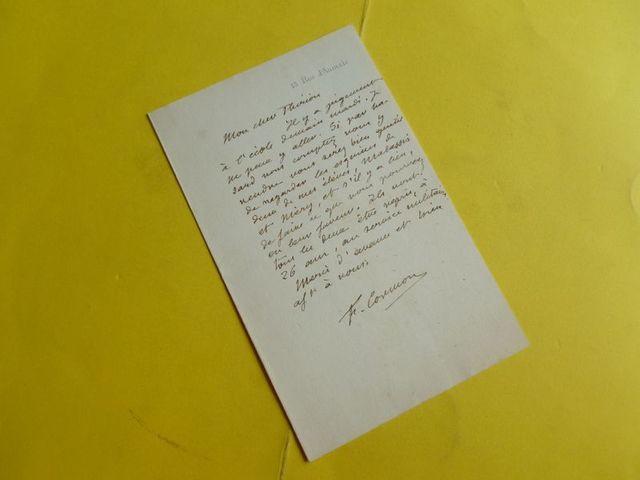 13 Rue d'Aumale
Mon cher Thirion
Il y a jugement
à l'école demain mardi. Je
ne peux y aller. Si par ha-
sard vous comptez vous y
rendre vous serez bien gentil
de regarder les esquisses de
deux de mes élèves, Malassis
et Miéry, et s'il y a lieu,
de faire ce que vous pourrez
en leur faveur. Ils vont
tous les deux être repris, à
26 ans, au service militaire
Merci d'avance et bien
aff à vous
F. Cormon